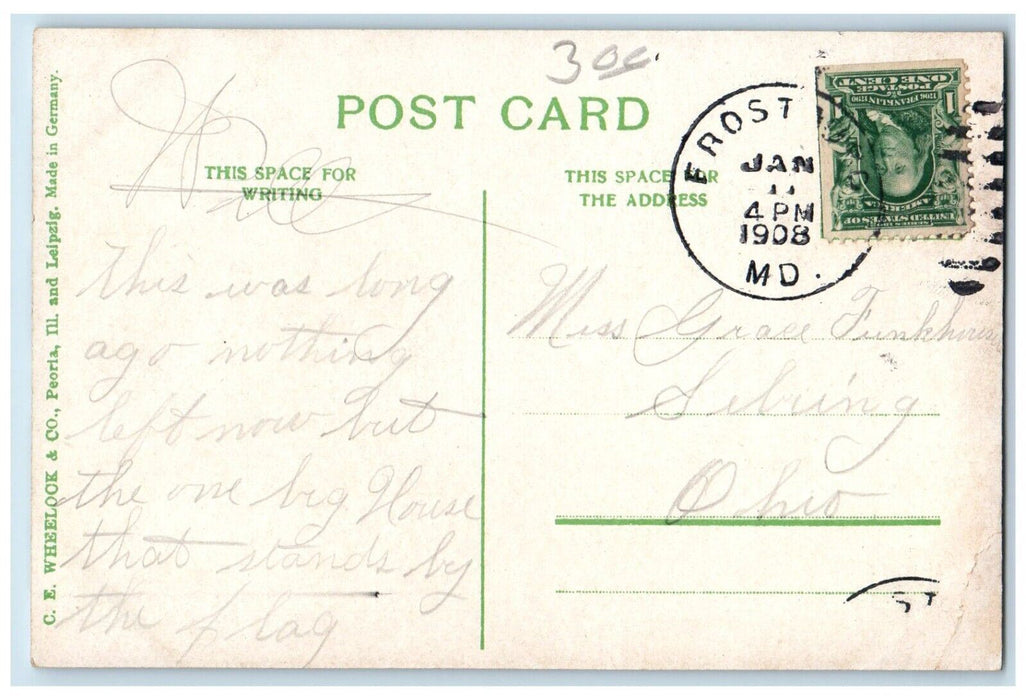 30c.
POST CARD
THIS SPACE FOR
WRITING
THIS SPACE FOR
THE ADDRESS
FROST
JAN
11
4 PM
1908
MD.
SERIES 1902
UNITED STATES OF
AMERICA
1706 FRANKLIN 1790
POSTAGE
ONE CENT
1
1
this was long
ago nothing
left now but
the one big House
that stands by
the flag
Miss Grace Funkhouser
Sebring
Ohio
C. E. WHEELOCK & CO., Peoria, Ill. and Leipzig. Made in Germany.
ST